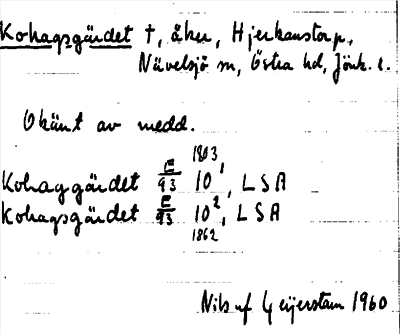 Kohagsgärdet †, åker, Hjerkanstorp,
Nävelsjö sn, Östra hd, Jönk. l.
Okänt av medd.
1803
Kohaggärdet E/93 10¹, LSA
Kohagsgärdet E/93 10², LSA
1862
Nils af Geijerstam 1960